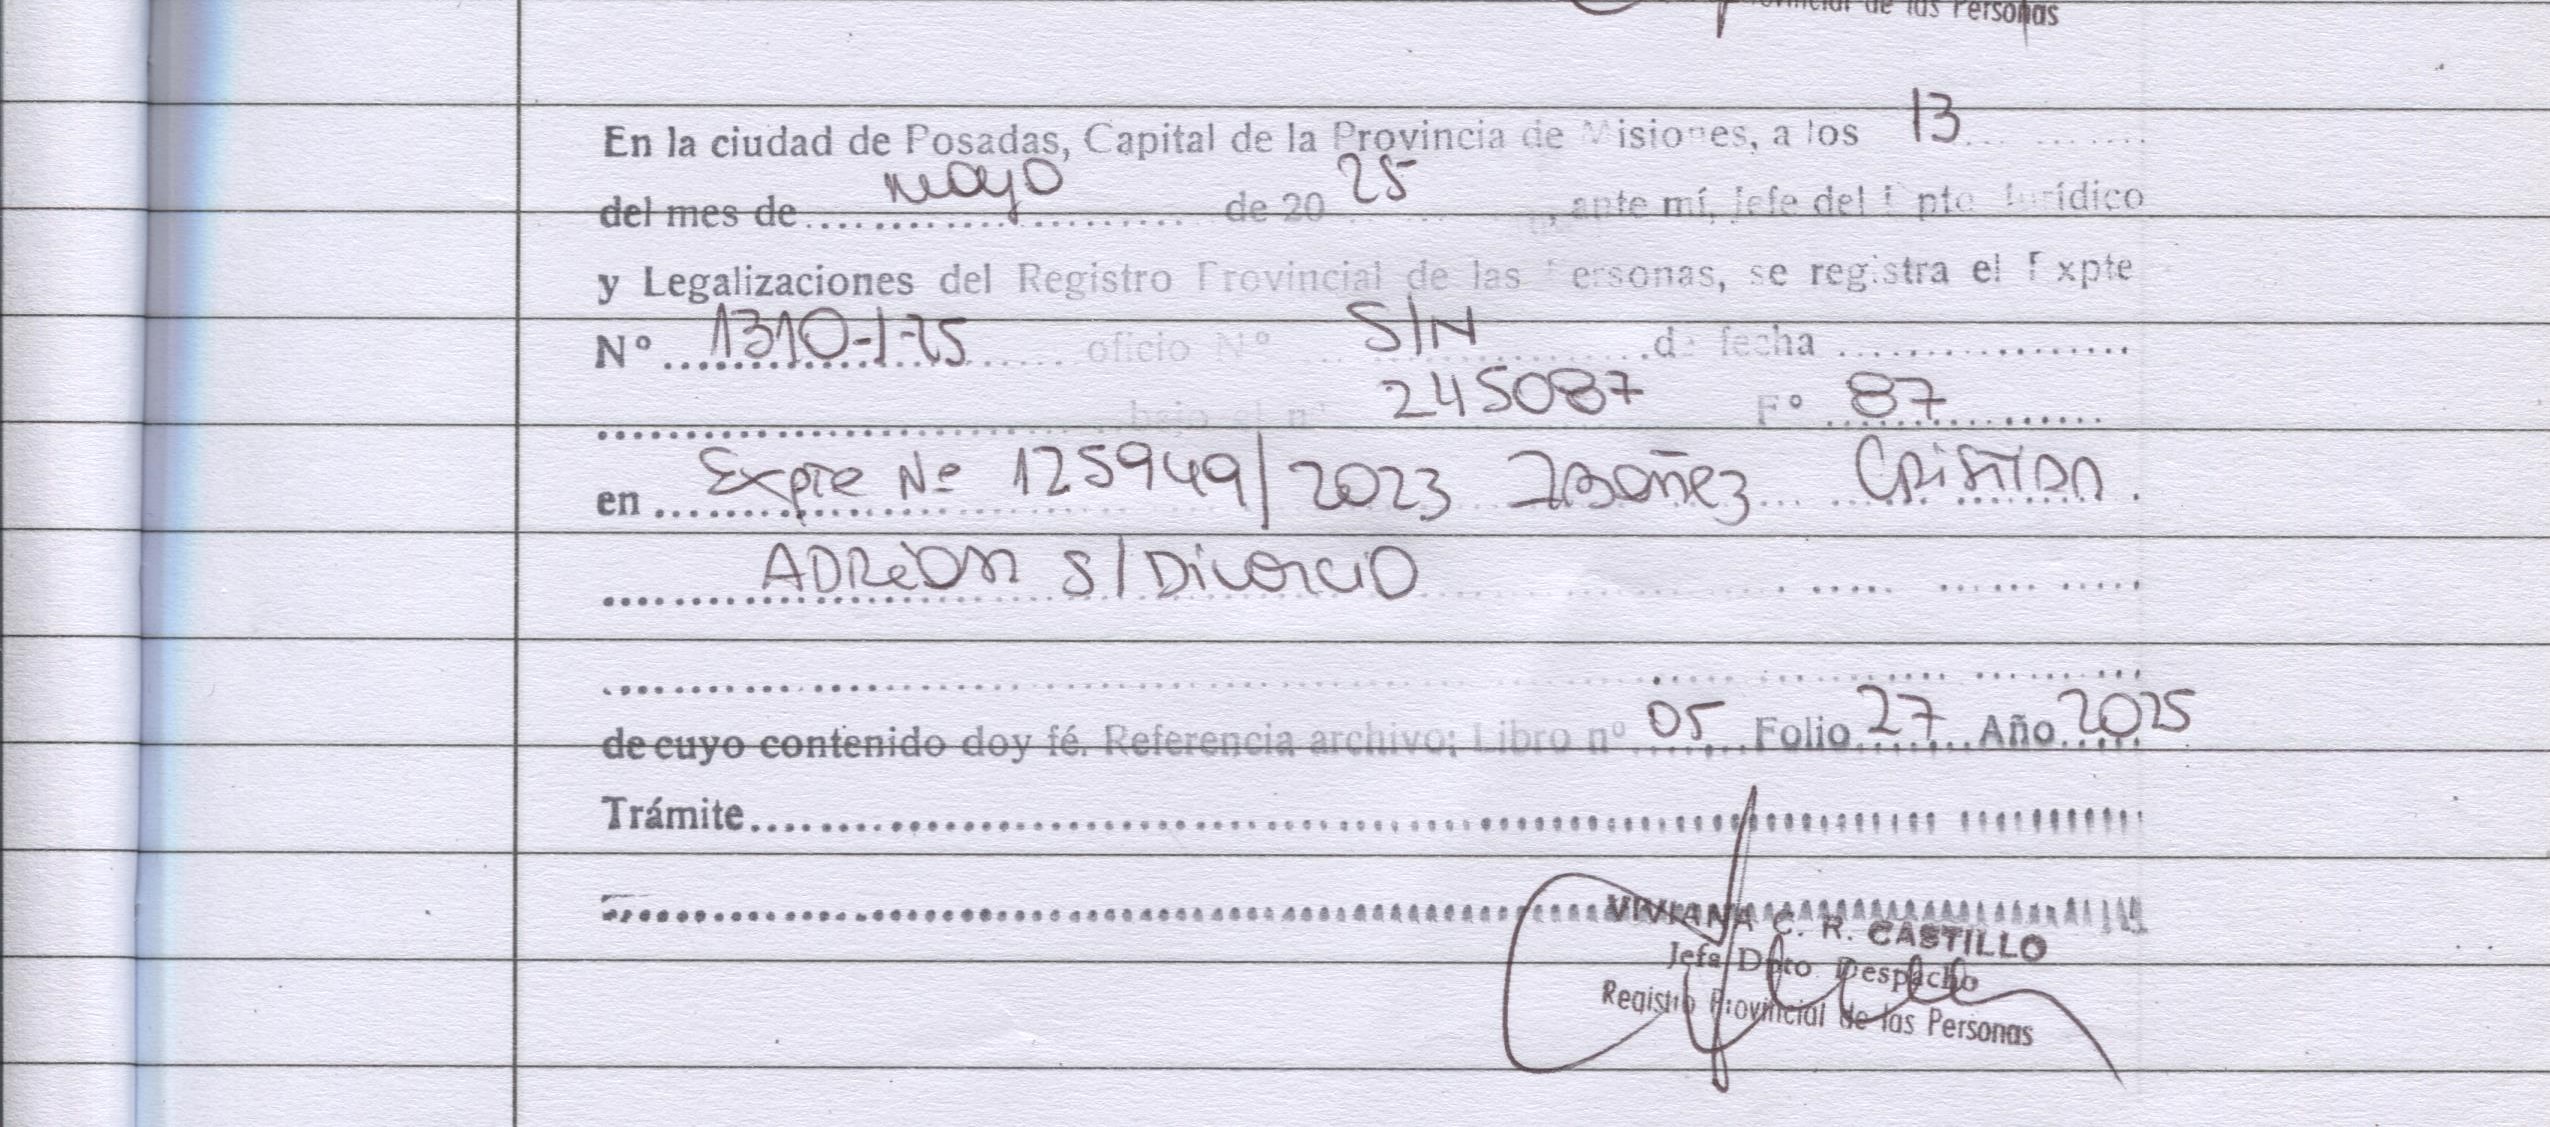 Provincial de las Personas
En la ciudad de Posadas, Capital de la Provincia de Misiones, a los 13
del mes de mayo de 20 25, ante mí, Jefe del Dpto Jurídico
y Legalizaciones del Registro Provincial de las Personas, se registra el Expte
N° 1310-I-25 oficio N° S/N de fecha
bajo el n° 245087 F° 87
en Expte Nº 125949/2023 Ibañez Cristian
Adrián S/Divorcio
de cuyo contenido doy fé. Referencia archivo: Libro nº 05 Folio 27 Año 2025
Trámite
VIVIANA C. R. CASTILLO
Jefa Dpto. Despacho
Registro Provincial de las Personas